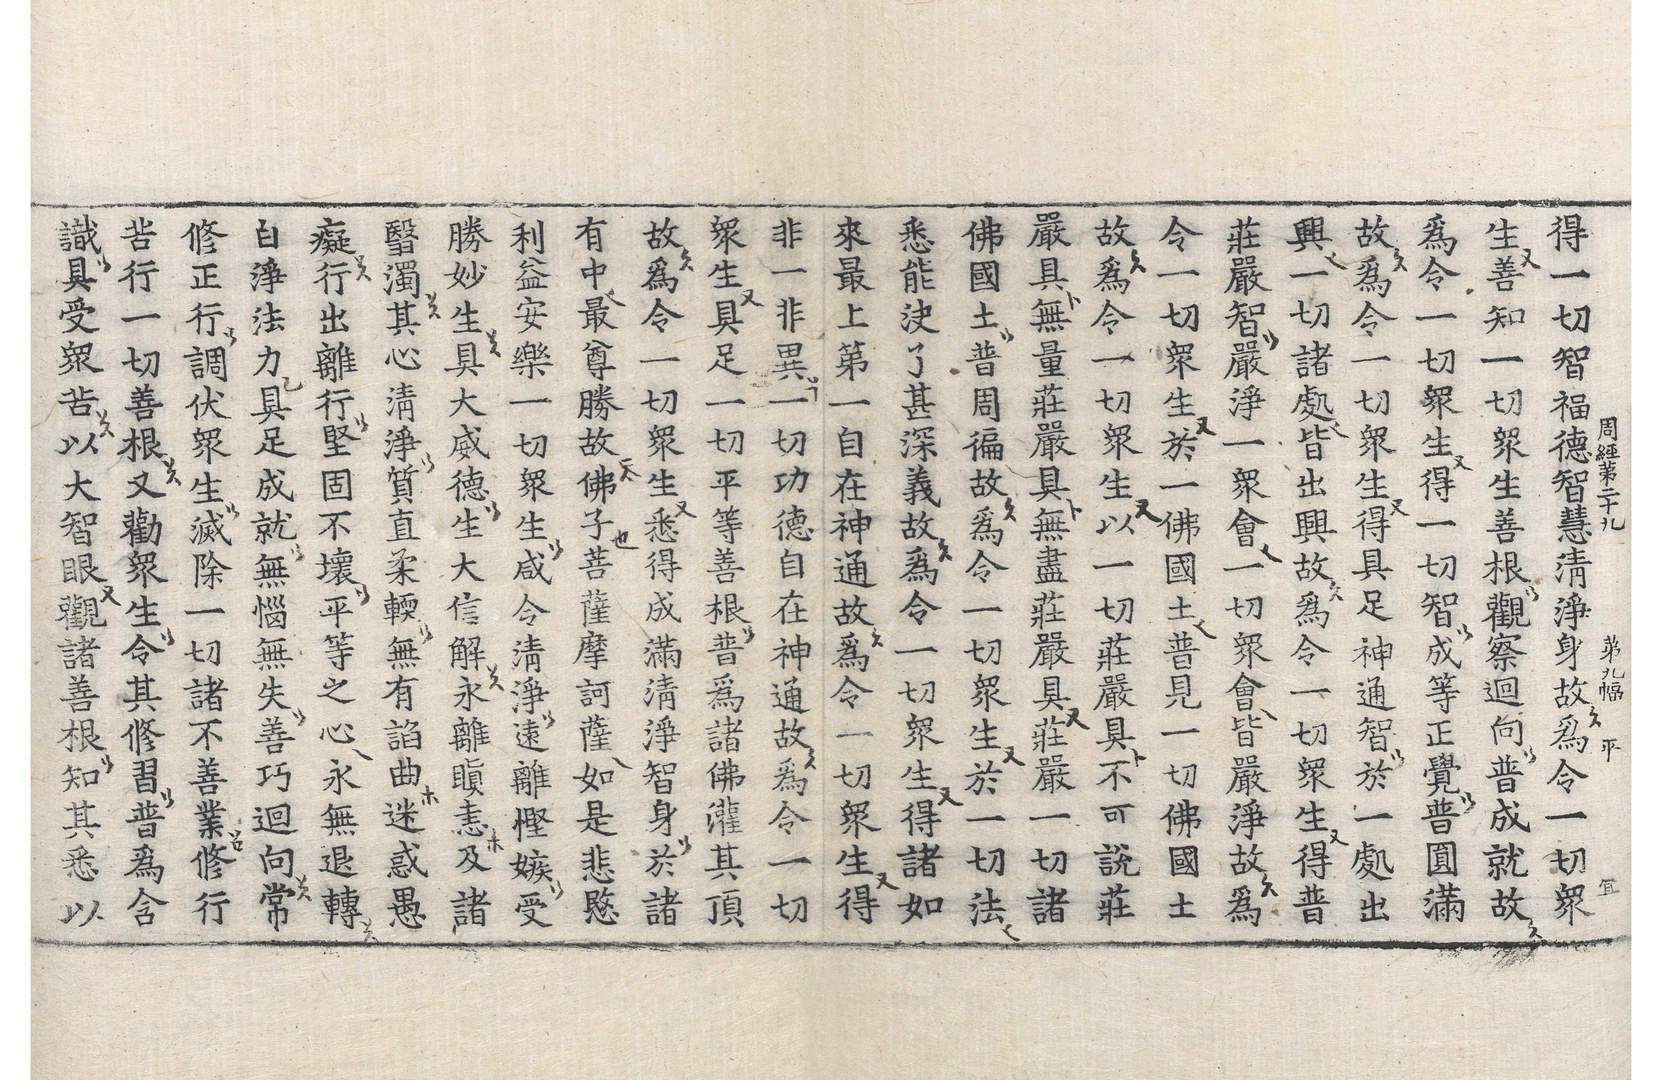 周經第二十九 第九幅 平 宜
得一切智福德智慧淸淨身故爲令一切衆
生善知一切衆生善根觀察迴向普成就故
爲令一切衆生得一切智成等正覺普圓滿
故爲令一切衆生得具足神通智於一處出
興一切諸處皆出興故爲令一切衆生得普
莊嚴智嚴淨一衆會一切衆會皆嚴淨故爲
令一切衆生於一佛國土普見一切佛國土
故爲令一切衆生以一切莊嚴具不可說莊
嚴具無量莊嚴具無盡莊嚴具莊嚴一切諸
佛國土普周徧故爲令一切衆生於一切法
悉能決了甚深義故爲令一切衆生得諸如
來最上第一自在神通故爲令一切衆生得
非一非異一切功德自在神通故爲令一切
衆生具足一切平等善根普爲諸佛灌其頂
故爲令一切衆生悉得成滿淸淨智身於諸
有中最尊勝故佛子菩薩摩訶薩如是悲愍
利益安樂一切衆生咸令淸淨遠離慳嫉受
勝妙生具大威德生大信解永離瞋恚及諸
翳濁其心淸淨質直柔輭無有諂曲迷惑愚
癡行出離行堅固不壞平等之心永無退轉
白淨法力具足成就無惱無失善巧迴向常
修正行調伏衆生滅除一切諸不善業修行
苦行一切善根又勸衆生令其修習普爲含
識具受衆苦以大智眼觀諸善根知其悉以